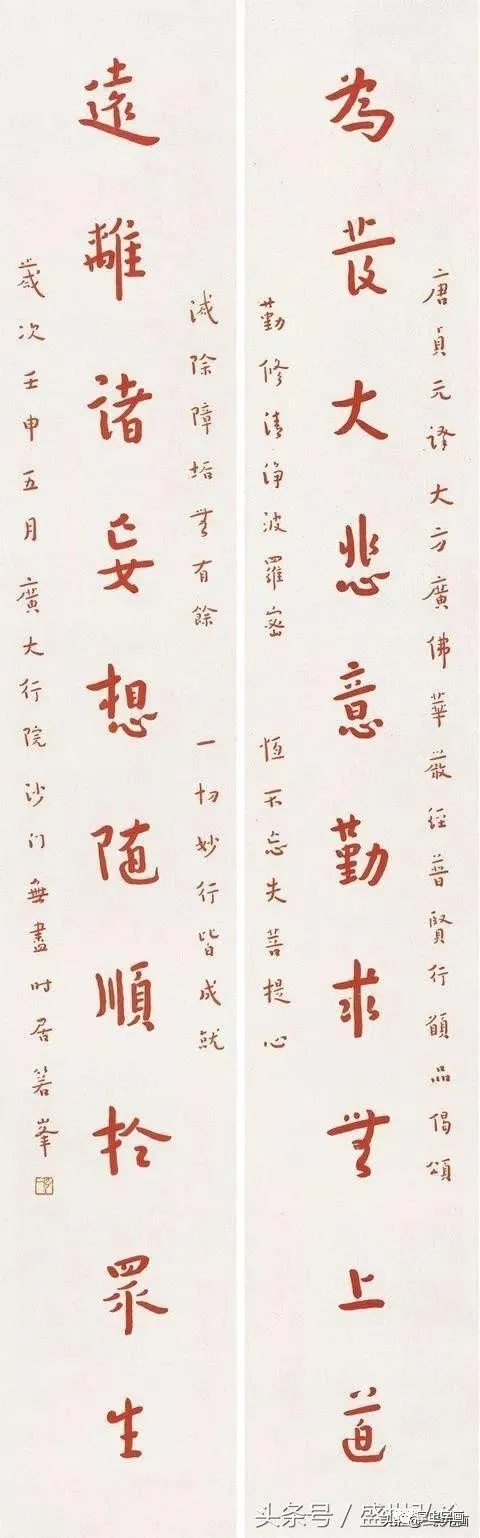 唐貞元譯大方廣佛華嚴經普賢行願品偈頌
為發大悲意勤求無上道
勤修清淨波羅密 恆不忘失菩提心
滅除障垢無有餘 一切妙行皆成就
遠離諸妄想隨順於眾生
歲次壬申五月廣大行院沙门無盡时居箬峯
头条号／盛世弘